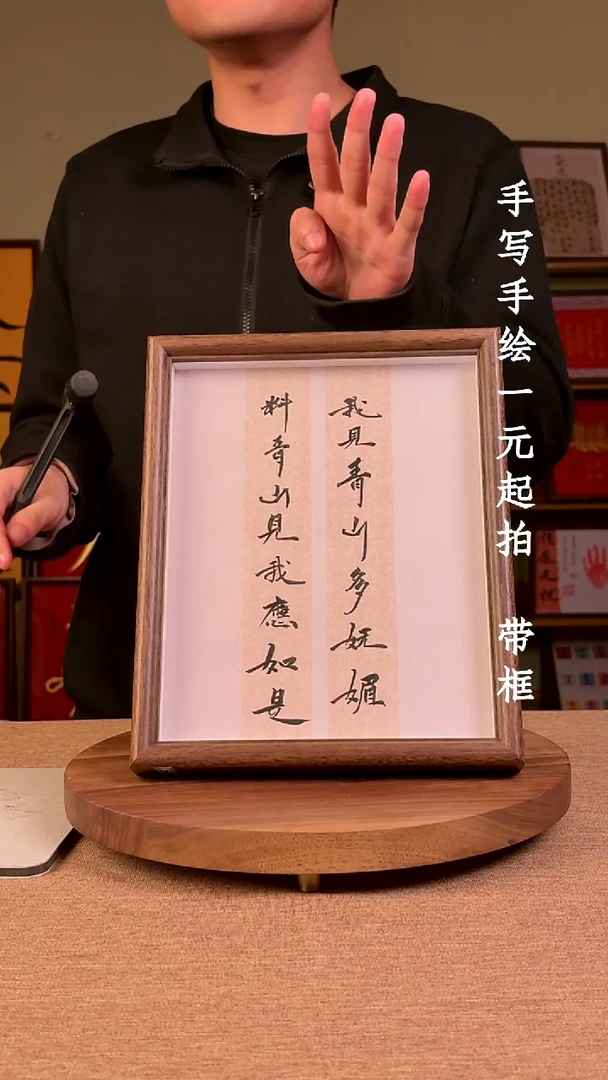 我見青山多妩媚
料青山見我應如是
手写手绘一元起拍 带框